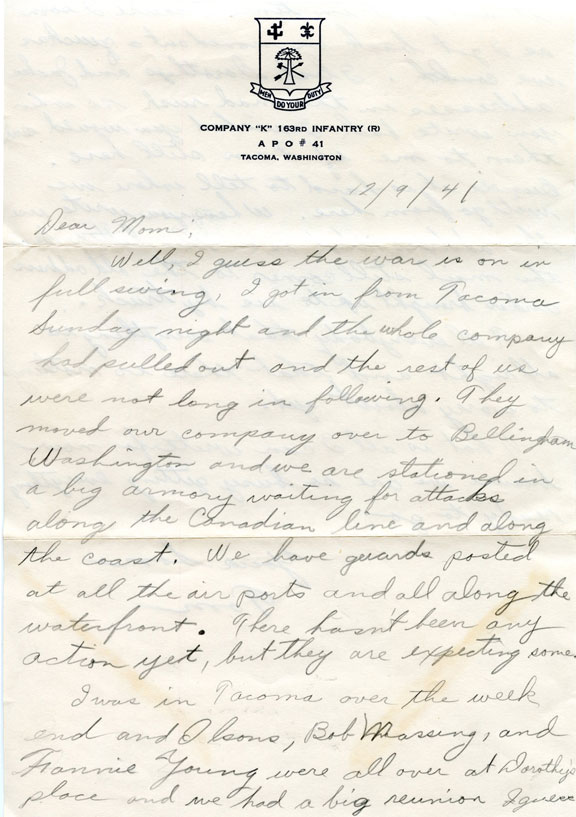 MEN DO YOUR DUTY
COMPANY "K" 163RD INFANTRY (R)
A P O # 41
TACOMA, WASHINGTON
12/9/41
Dear Mom;
Well, I guess the war is on in
full swing, I got in from Tacoma
Sunday night and the whole company
had pulled out and the rest of us
were not long in following. They
moved our company over to Bellingham
Washington and we are stationed in
a big armory waiting for attacks
along the Canadian line and along
the coast. We have guards posted
at all the air ports and all along the
waterfront. There hasn't been any
action yet, but they are expecting some.
I was in Tacoma over the week
end and Olsons, Bob Massing, and
Fannie Young were all over at Dorothy's
place and we had a big reunion I guess